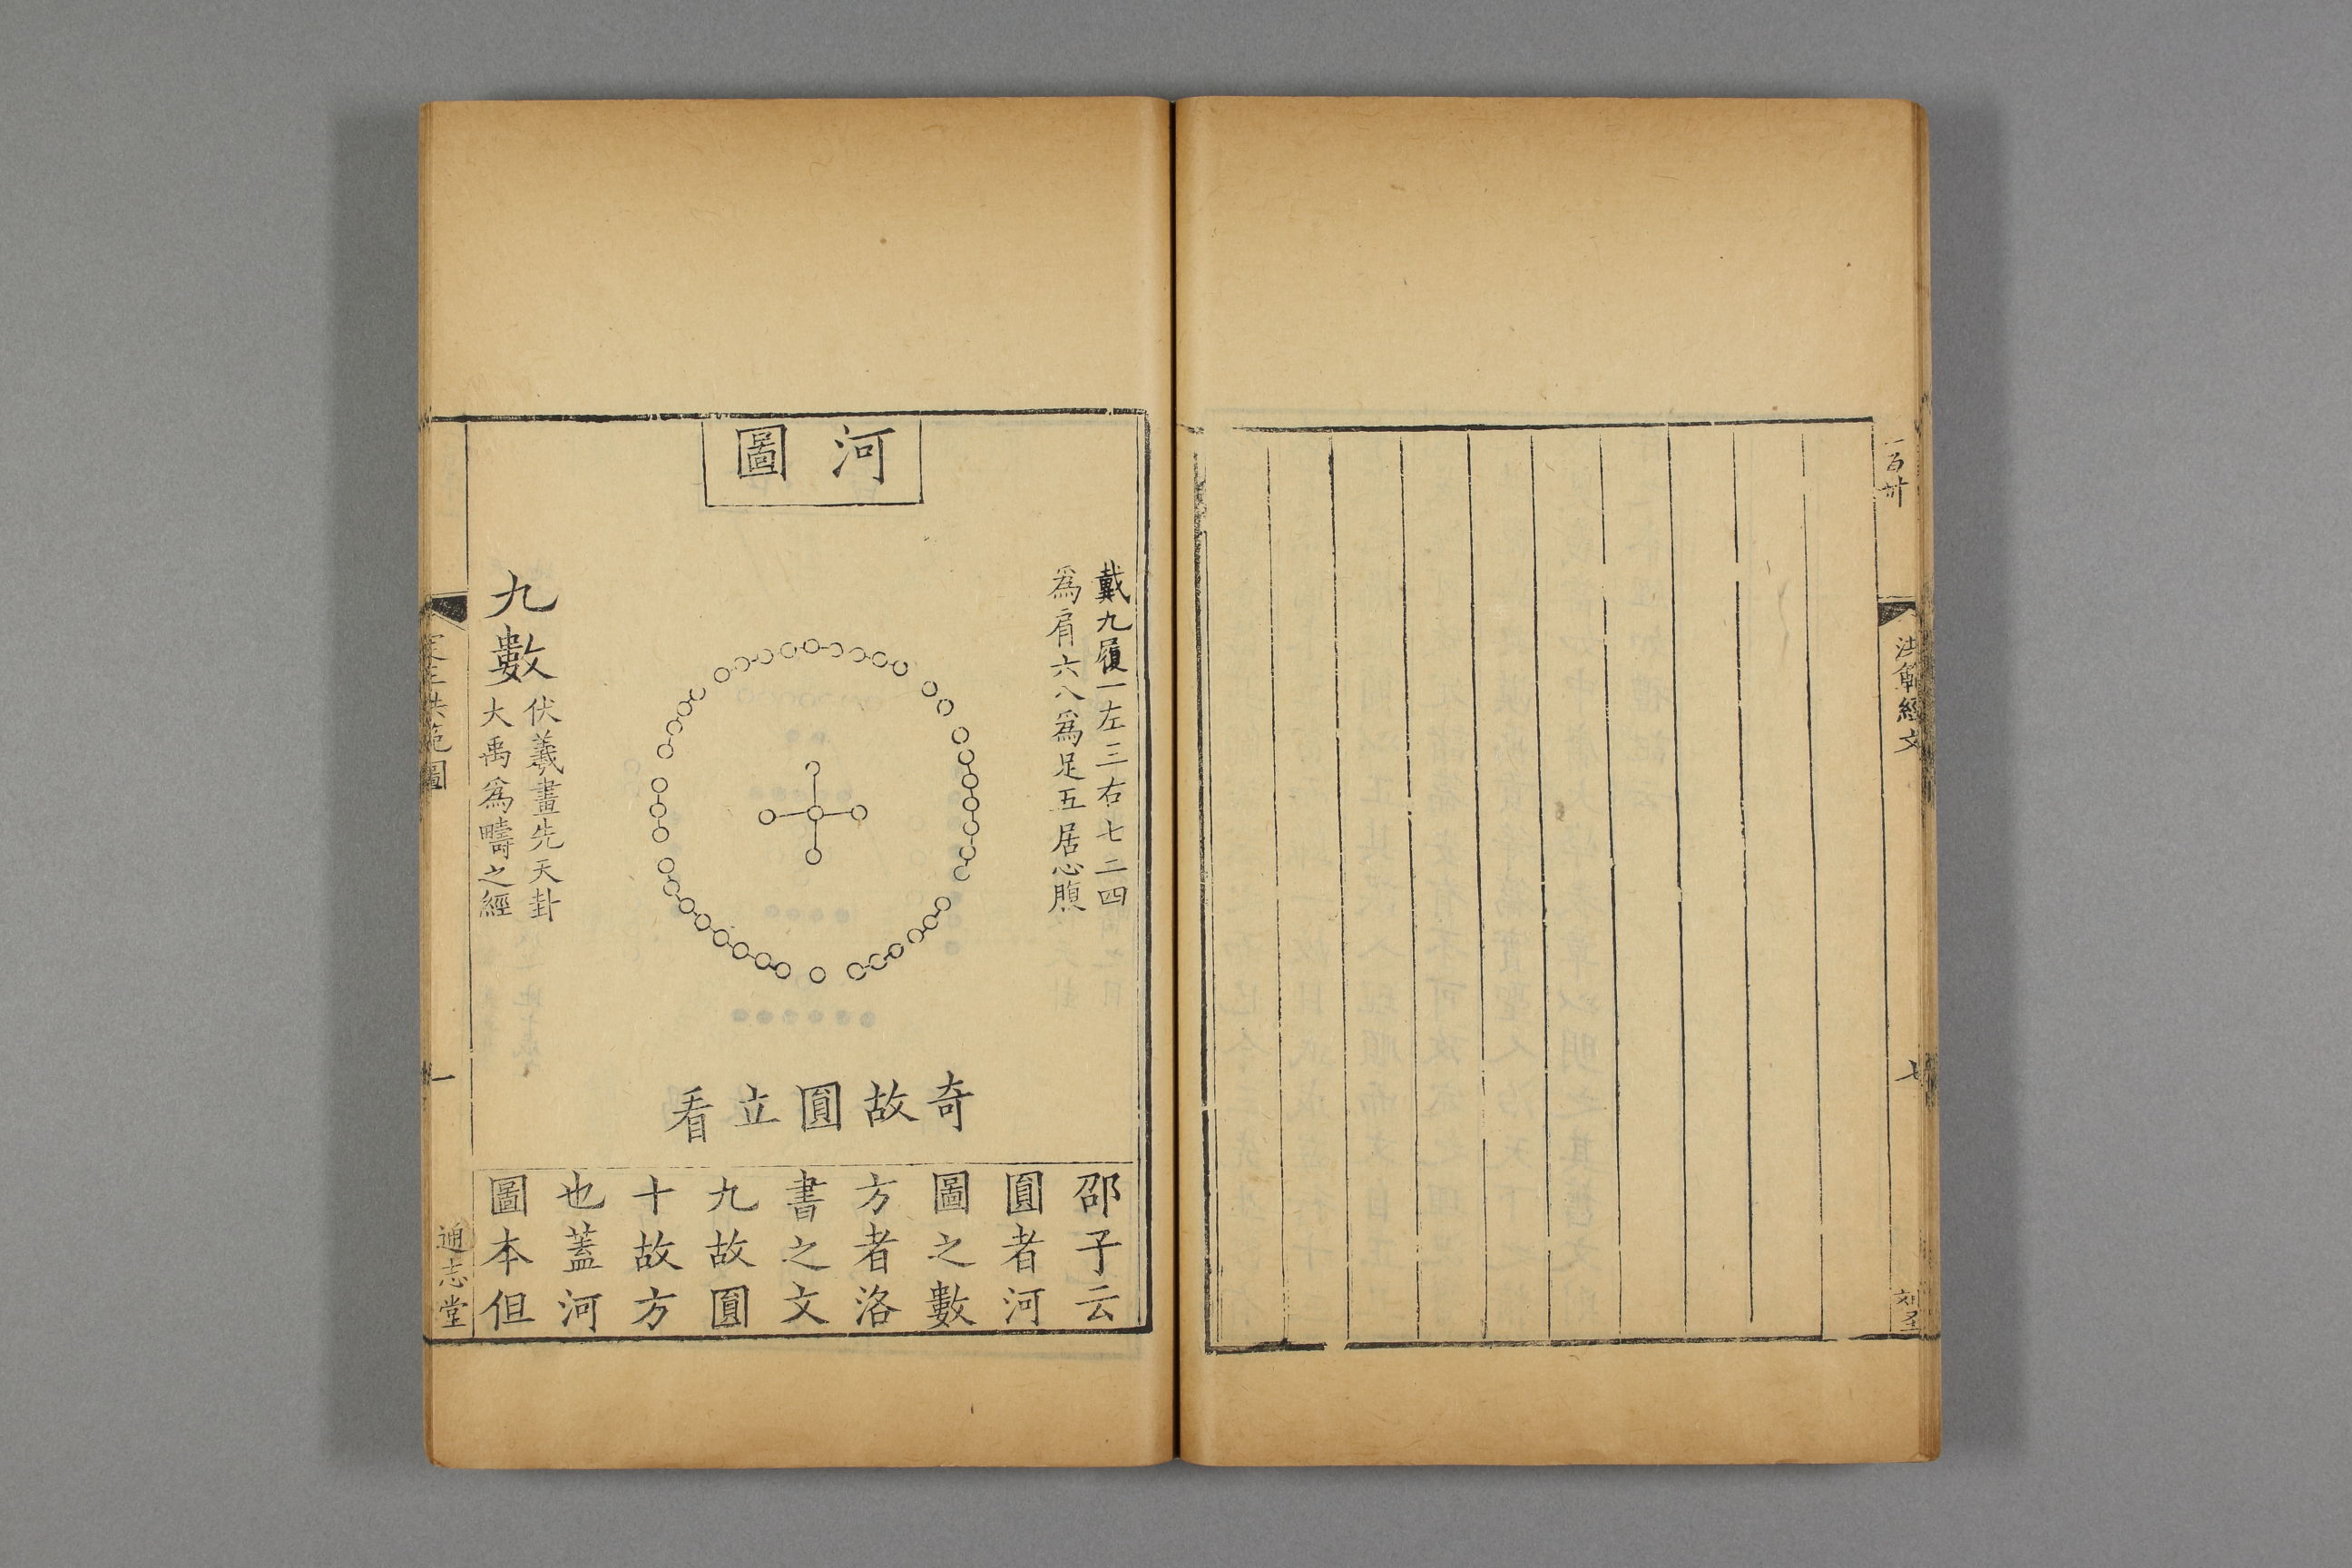 一百卅
洪範經文
七
河圖
戴九履一左三右七二四
爲肩六八爲足五居心腹
九數
伏羲畫先天卦
大禹爲疇之經
奇故圓立看
邵子云
圓者河
圖之數
方者洛
書之文
九故圓
十故方
也蓋河
圖本但
洪範圖
一
通志堂